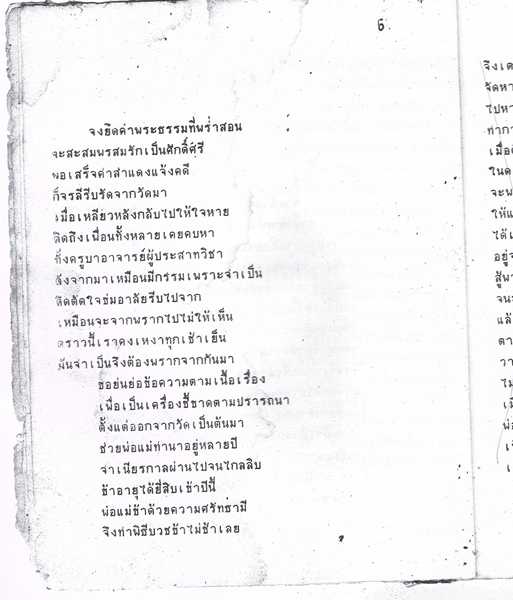 6
จงยึดคำพระธรรมที่พร่ำสอน
จะสะสมพรสมรักเป็นศักดิ์ศรี
พอเสร็จคำสำแดงแจ้งคดี
ก็จรลีรีบรัดจากวัดมา
เมื่อเหลียวหลังกลับไปให้ใจหาย
คิดถึงเพื่อนทั้งหลายเคยคบหา
ทั้งครูบาอาจารย์ผู้ประสาทวิชา
ต้งจากมาเหมือนมีกรรมเพราะจำเป็น
คิดตัดใจข่มอาลัยรีบไปจาก
เหมือนจะจากพรากไปไม่ให้เห็น
คราวนี้เราคงเหงาทุกเช้าเย็น
มันจำเป็นจึงต้องพรากจากกันมา
ขอย่นย่อข้อความตามเนื้อเรื่อง
เพื่อเป็นเครื่องชี้ขาดตามปรารถนา
ตั้งแต่ออกจากวัดเป็นต้นมา
ช่วยพ่อแม่ทำนาอยู่หลายปี
จำเนียรกาลผ่านไปจนไกลลิบ
ข้าอายุได้ยี่สิบเข้าปีนี้
พ่อแม่ข้าด้วยความศรัทธามี
จึงทำพิธีบวชข้าไม่ช้าเลย
จึงเต
จัดหา
ไปหา
ทำกา
เมื่อ
ในค
จะพ
ให้แ
ได้เ
อยู่จ
สู้พ
จน
แล้
ตา
วา
ไม่
เมื
พ่อ